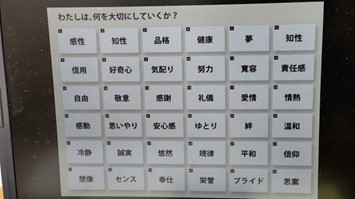 わたしは、何を大切にしていくか？
感性 知性 品格 健康 夢 知性
信用 好奇心 気配り 努力 寛容 責任感
自由 敬意 感謝 礼儀 愛情 情熱
感動 思いやり 安心感 ゆとり 絆 温和
冷静 誠実 悠然 規律 平和 信仰
想像 センス 奉仕 栄誉 プライド 思案